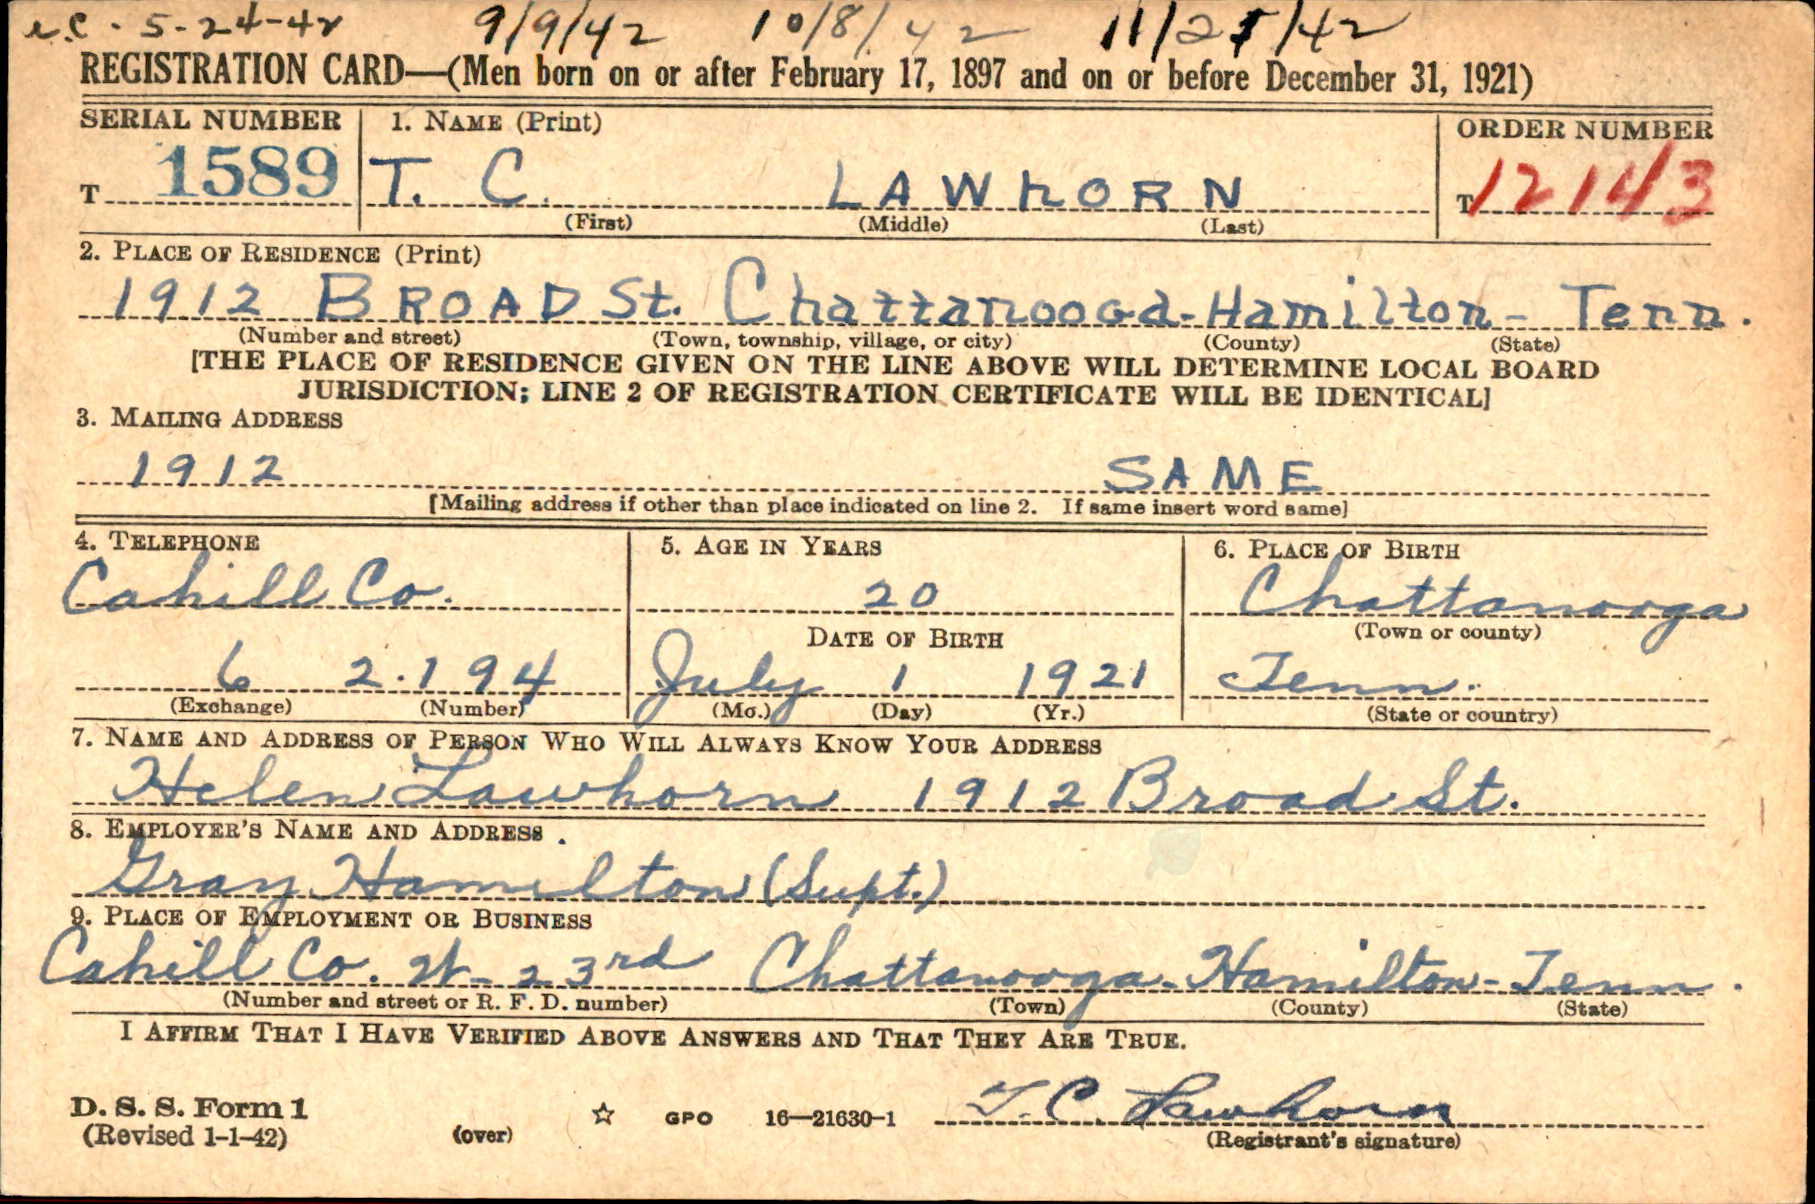 5-24-42 9/9/42 10/8/42 11/25/42
REGISTRATION CARD—(Men born on or after February 17, 1897 and on or before December 31, 1921)
SERIAL NUMBER 1. NAME (Print) ORDER NUMBER
T 1589 T. C. LAWhORN T 12143
(First) (Middle) (Last)
2. PLACE OF RESIDENCE (Print)
1912 BROAD St. Chattanooga-Hamilton- Tenn.
(Number and street) (Town, township, village, or city) (County) (State)
[THE PLACE OF RESIDENCE GIVEN ON THE LINE ABOVE WILL DETERMINE LOCAL BOARD
JURISDICTION; LINE 2 OF REGISTRATION CERTIFICATE WILL BE IDENTICAL]
3. MAILING ADDRESS
1912 SAME
[Mailing address if other than place indicated on line 2. If same insert word same]
4. TELEPHONE 5. AGE IN YEARS 6. PLACE OF BIRTH
Cahill Co. 20 Chattanooga
DATE OF BIRTH (Town or county)
6 2.194 July 1 1921 Tenn.
(Exchange) (Number) (Mo.) (Day) (Yr.) (State or country)
7. NAME AND ADDRESS OF PERSON WHO WILL ALWAYS KNOW YOUR ADDRESS
Helen Lawhorn 1912 Broad St.
8. EMPLOYER'S NAME AND ADDRESS.
Gray Hamilton (Supt.)
9. PLACE OF EMPLOYMENT OR BUSINESS
Cahill Co. W-23rd Chattanooga-Hamilton-Tenn.
(Number and street or R. F. D. number) (Town) (County) (State)
I AFFIRM THAT I HAVE VERIFIED ABOVE ANSWERS AND THAT THEY ARE TRUE.
D. S. S. Form 1
(Revised 1-1-42) (over) ☆ GPO 16—21630-1 T. C. Lawhorn
(Registrant's signature)